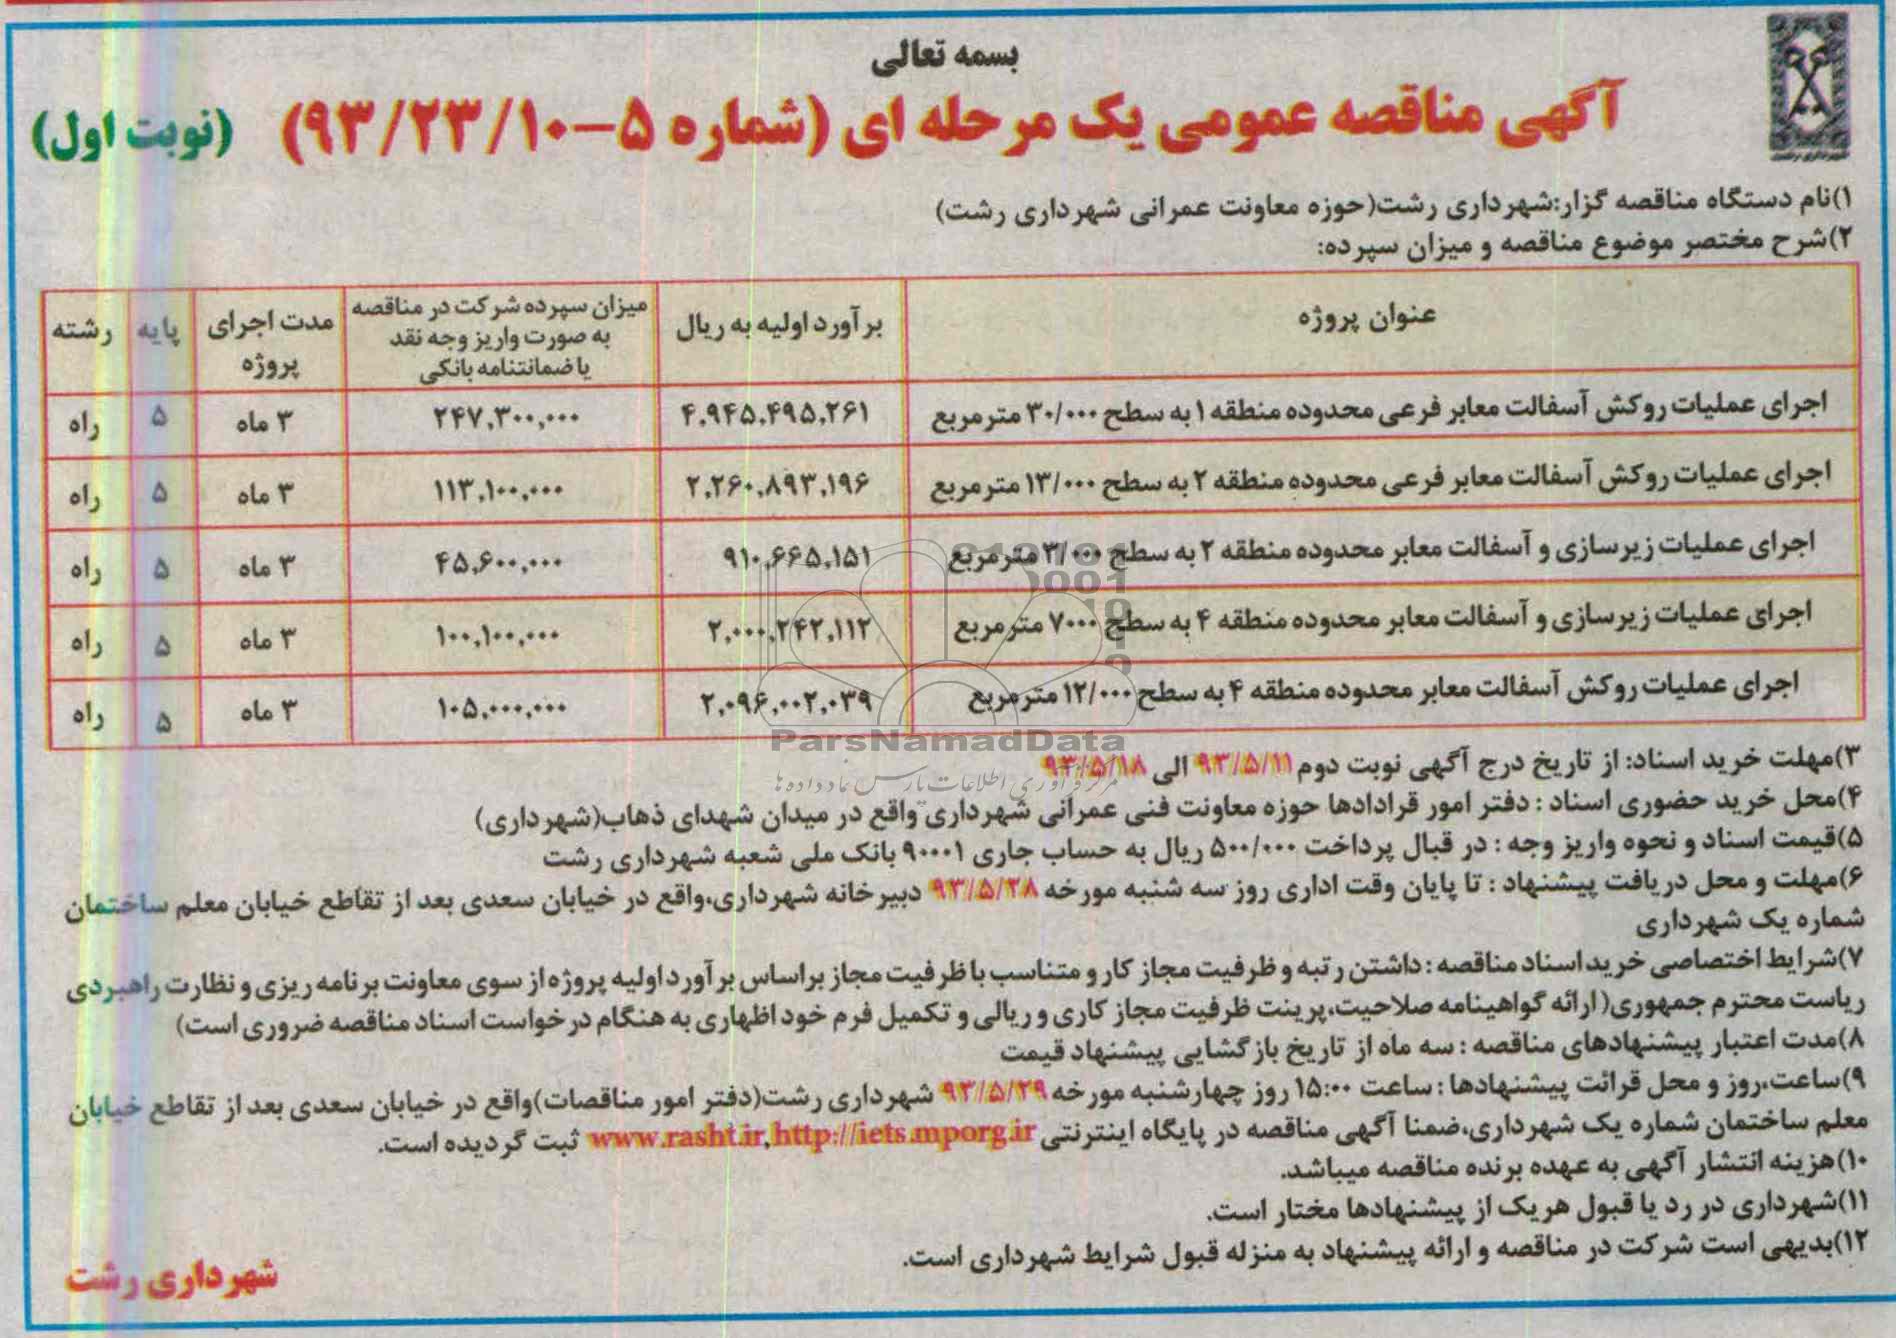 بسمه تعالی
آگهی مناقصه عمومی یک مرحله ای (شماره ۵-۹۳/۲۳/۱۰) (نوبت اول)
۱)نام دستگاه مناقصه گزار:شهرداری رشت(حوزه معاونت عمرانی شهرداری رشت)
۲)شرح مختصر موضوع مناقصه و میزان سپرده:
عنوان پروژه
برآورد اولیه به ریال
میزان سپرده شرکت در مناقصه
به صورت واریز وجه نقد
یا ضمانتنامه بانکی
مدت اجرای
پروژه
پایه
رشته
اجرای عملیات روکش آسفالت معابر فرعی محدوده منطقه ۱ به سطح ۳۰/۰۰۰ مترمربع ۴,۹۴۵,۴۹۵,۲۶۱ ۲۴۷,۳۰۰,۰۰۰ ۳ ماه ۵ راه
اجرای عملیات روکش آسفالت معابر فرعی محدوده منطقه ۲ به سطح ۱۳/۰۰۰ مترمربع ۲,۲۶۰,۸۹۳,۱۹۶ ۱۱۳,۱۰۰,۰۰۰ ۳ ماه ۵ راه
اجرای عملیات زیرسازی و آسفالت معابر محدوده منطقه ۲ به سطح ۳/۰۰۰ مترمربع ۹۱۰,۶۶۵,۱۵۱ ۴۵,۶۰۰,۰۰۰ ۳ ماه ۵ راه
اجرای عملیات زیرسازی و آسفالت معابر محدوده منطقه ۴ به سطح ۷۰۰۰ مترمربع ۲,۰۰۰,۲۴۲,۱۱۲ ۱۰۰,۱۰۰,۰۰۰ ۳ ماه ۵ راه
اجرای عملیات روکش آسفالت معابر محدوده منطقه ۴ به سطح ۱۲/۰۰۰ مترمربع ۲,۰۹۶,۰۰۲,۰۳۹ ۱۰۵,۰۰۰,۰۰۰ ۳ ماه ۵ راه
ParsNamadData
مرکز فرآوری اطلاعات پارس نماد داده ها
۳)مهلت خرید اسناد: از تاریخ درج آگهی نوبت دوم ۹۳/۵/۱۱ الی ۹۳/۵/۱۸
۴)محل خرید حضوری اسناد : دفتر امور قرادادها حوزه معاونت فنی عمرانی شهرداری واقع در میدان شهدای ذهاب(شهرداری)
۵)قیمت اسناد و نحوه واریز وجه : در قبال پرداخت ۵۰۰/۰۰۰ ریال به حساب جاری ۹۰۰۰۱ بانک ملی شعبه شهرداری رشت
۶)مهلت و محل دریافت پیشنهاد : تا پایان وقت اداری روز سه شنبه مورخه ۹۳/۵/۲۸ دبیرخانه شهرداری،واقع در خیابان سعدی بعد از تقاطع خیابان معلم ساختمان
شماره یک شهرداری
۷)شرایط اختصاصی خرید اسناد مناقصه : داشتن رتبه و ظرفیت مجاز کار و متناسب با ظرفیت مجاز براساس برآورد اولیه پروژه از سوی معاونت برنامه ریزی و نظارت راهبردی
ریاست محترم جمهوری(ارائه گواهینامه صلاحیت،پرینت ظرفیت مجاز کاری و ریالی و تکمیل فرم خود اظهاری به هنگام درخواست اسناد مناقصه ضروری است)
۸)مدت اعتبار پیشنهادهای مناقصه : سه ماه از تاریخ بازگشایی پیشنهاد قیمت
۹)ساعت،روز و محل قرائت پیشنهادها : ساعت ۱۵:۰۰ روز چهارشنبه مورخه ۹۳/۵/۲۹ شهرداری رشت(دفتر امور مناقصات)واقع در خیابان سعدی بعد از تقاطع خیابان
معلم ساختمان شماره یک شهرداری،ضمنا آگهی مناقصه در پایگاه اینترنتی www.rasht.ir,http://iets.mporg.ir ثبت گردیده است.
۱۰)هزینه انتشار آگهی به عهده برنده مناقصه میباشد.
۱۱)شهرداری در رد یا قبول هریک از پیشنهادها مختار است.
۱۲)بدیهی است شرکت در مناقصه و ارائه پیشنهاد به منزله قبول شرایط شهرداری است.
شهرداری رشت